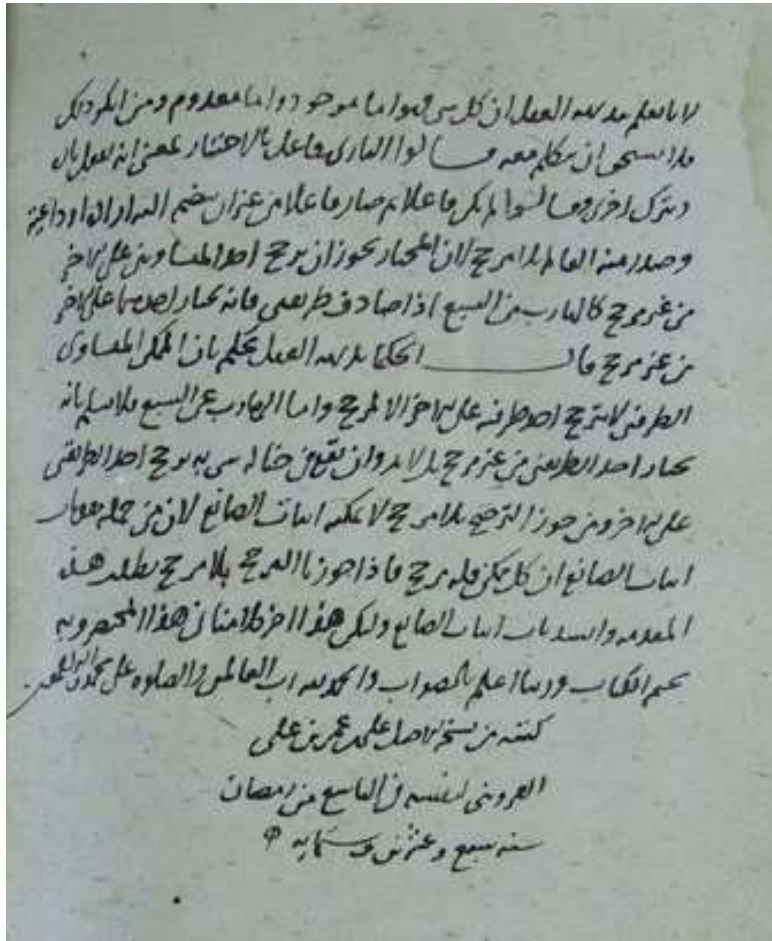 لانا نعلم ببديهة العقل ان كل شى فهو اما موجود واما معدوم ومن انكر ذلك
فلا يستحق ان يتكلم معه وقالوا البارى فاعل بالاختيار بمعنى انه يفعل
ويترك اخرى وقالوا لم يكن فاعلا ثم صار فاعلا من غير ان ينضم اليه ارادة او داعية
وصدر منه العالم بلا مرجح لان المختار يجوز ان يرجح احد المتساويين على الاخر
من غير مرجح كالهارب من السبع اذا صادف طريقين فانه يختار احدهما على الاخر
من غير مرجح قالــــت الحكما بديهة العقل تحكم بان الممكن المتساوى
الطرفين لا يترجح احد طرفيه على الاخر الا لمرجح واما الهارب عن السبع فلا نسلم بانه
يختار احد الطريقين من غير مرجح بل لا بد وان يقع فى خياله شى به يرجح احد الطريقين
على الاخر ومن جوز الترجيح بلا مرجح لا يمكنه اثبات الصانع لان من جملة مقدمات
اثبات الصانع ان كل ممكن فله مرجح فاذا جوزنا الترجيح بلا مرجح بطلت هذه
المقدمة وانسد باب اثبات الصانع وليكن هذا اخر كلامنا فى هذا المختصر وبه
نختم الكتاب وربنا اعلم بالصواب والحمد لله رب العالمين والصلوة على محمد واله
كتبته من نسخة الاصل على بن عمر بن على
القزوينى لنفسه فى التاسع من رمضان
سنه سبع وعشرين وستمايه